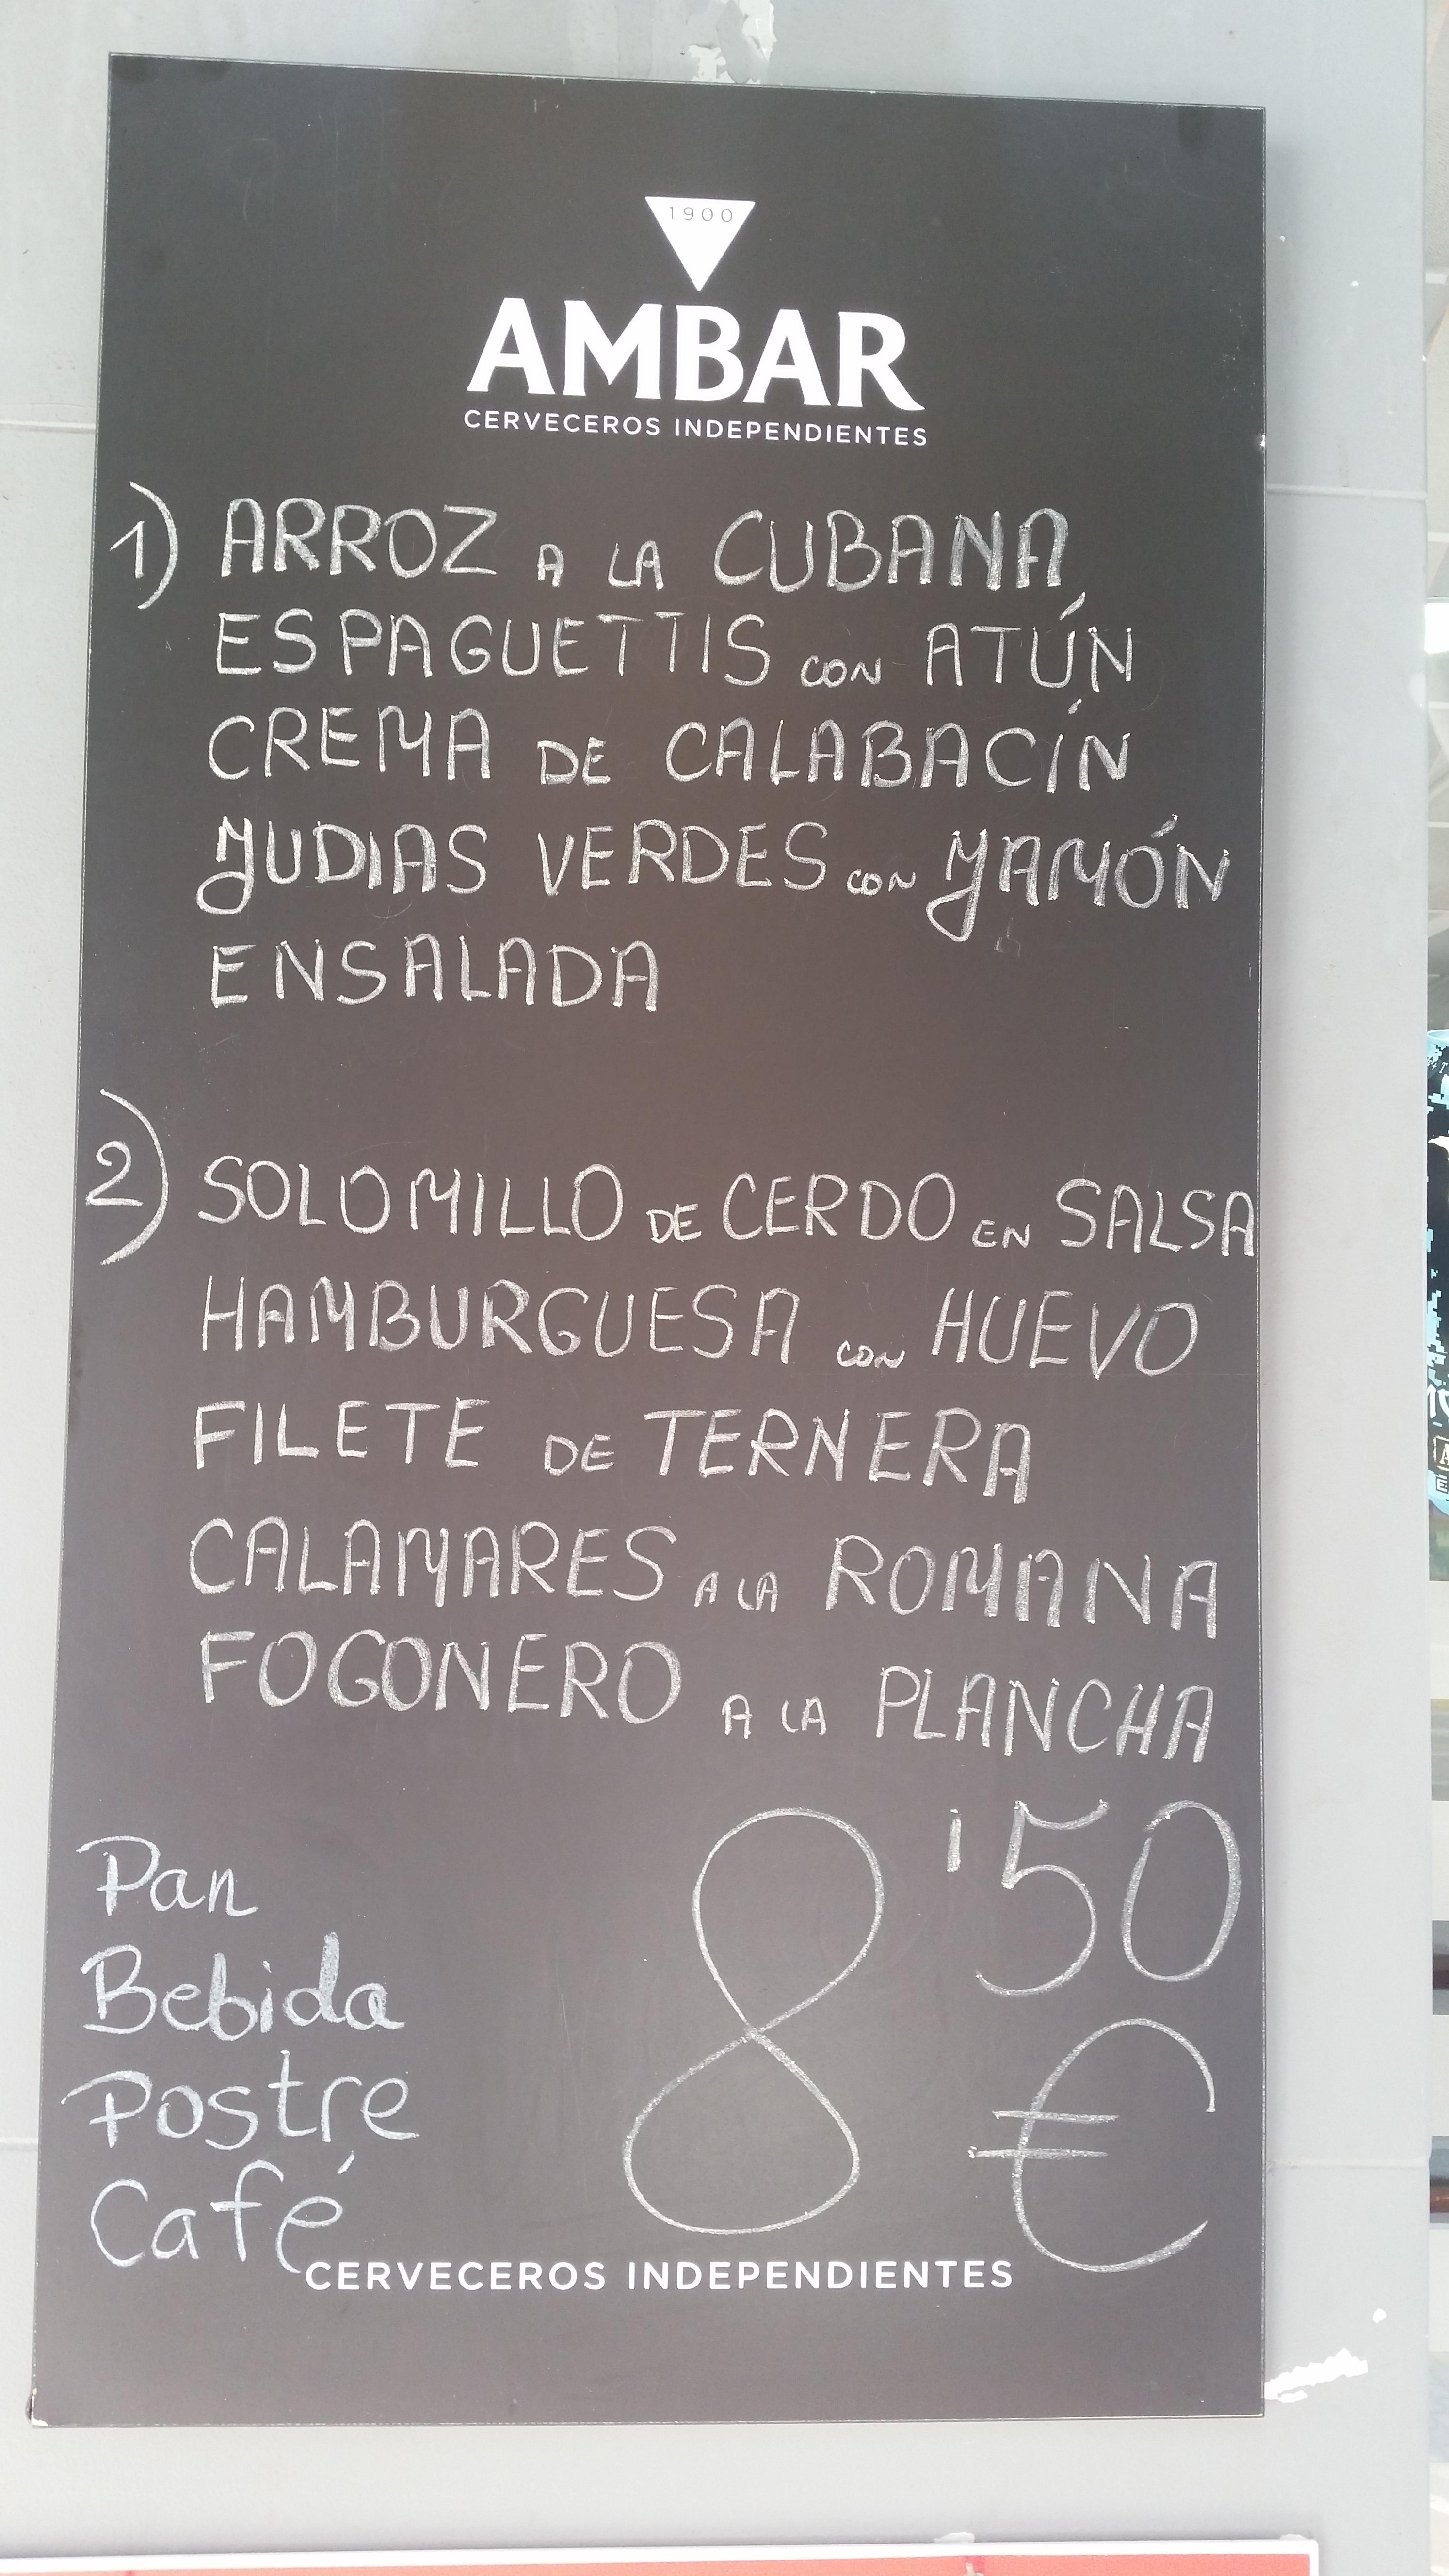 1900
AMBAR
CERVECEROS INDEPENDIENTES
1) ARROZ A LA CUBANA
ESPAGUETTIS CON ATÚN
CREMA DE CALABACÍN
JUDIAS VERDES CON JAMÓN
ENSALADA
2) SOLOMILLO DE CERDO EN SALSA
HAMBURGUESA CON HUEVO
FILETE DE TERNERA
CALAMARES A LA ROMANA
FOGONERO A LA PLANCHA
Pan
Bebida
Postre
Café
8'50
€
CERVECEROS INDEPENDIENTES